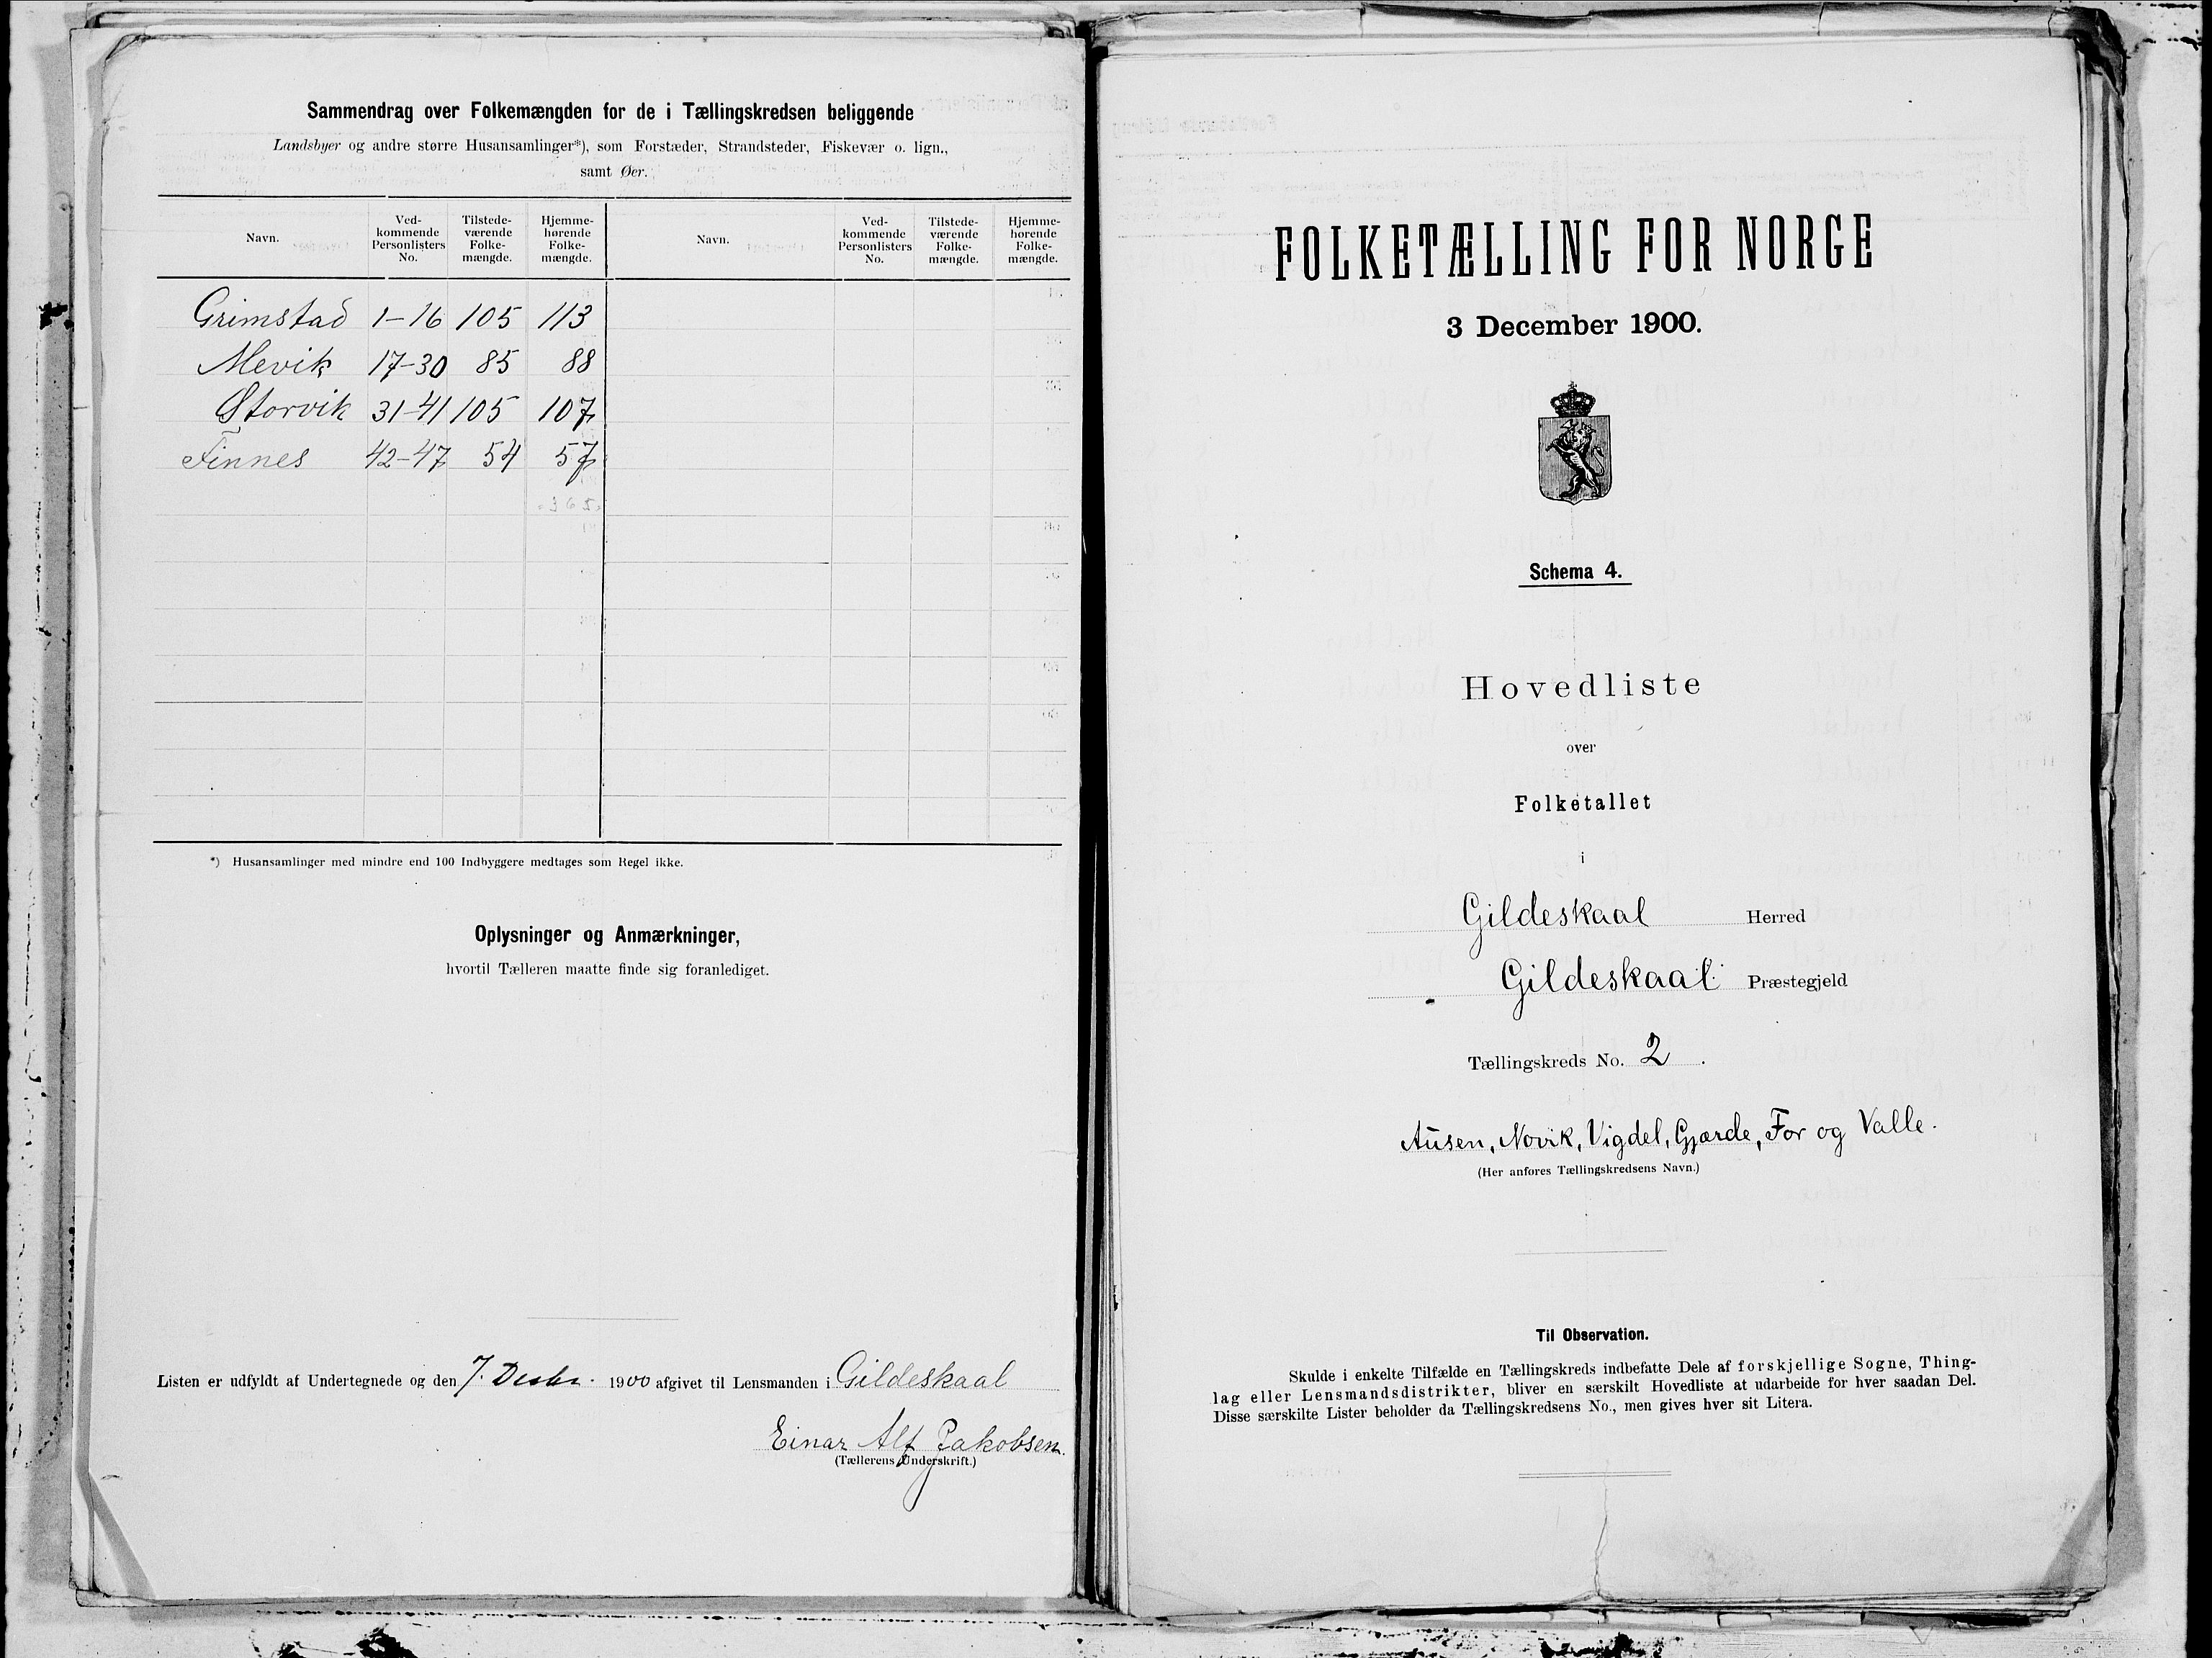 Sammendrag over Folkemængden for de i Tællingskredsen beliggende
Landsbyer og andre større Husansamlinger*), som Forstæder, Strandsteder, Fiskevær o. lign.,
samt Øer.
Navn. Ved-kommende Personlisters No. Tilstede-værende Folke-mængde. Hjemme-hørende Folke-mængde. Navn. Ved-kommende Personlisters No. Tilstede-værende Folke-mængde. Hjemme-hørende Folke-mængde.
Grimstad 1-16 105 113
Mevik 17-30 85 88
Storvik 31-41 105 107
Finnes 42-47 54 57
365
*) Husansamlinger med mindre end 100 Indbyggere medtages som Regel ikke.
Oplysninger og Anmærkninger,
hvortil Tælleren maatte finde sig foranlediget.
Listen er udfyldt af Undertegnede og den 7. Desbr. 1900 afgivet til Lensmanden i Gildeskaal
Einar Alf Jakobsen.
(Tællerens Underskrift.)
FOLKETÆLLING FOR NORGE
3 December 1900.
Schema 4.
Hovedliste
over
Folketallet
i
Gildeskaal Herred
Gildeskaal Præstegjeld
Tællingskreds No. 2.
Ausen, Novik, Vigdel, Gjærde, For og Valle.
(Her anføres Tællingskredsens Navn.)
Til Observation.
Skulde i enkelte Tilfælde en Tællingskreds indbefatte Dele af forskjellige Sogne, Thing-
lag eller Lensmandsdistrikter, bliver en særskilt Hovedliste at udarbeide for hver saadan Del.
Disse særskilte Lister beholder da Tællingskredsens No., men gives hver sit Litera.